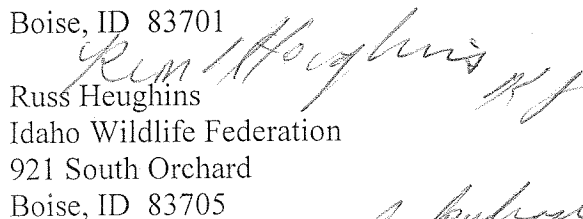 Boise, ID 83701
Russ Heughins
Russ Heughins
Idaho Wildlife Federation
921 South Orchard
Boise, ID 83705